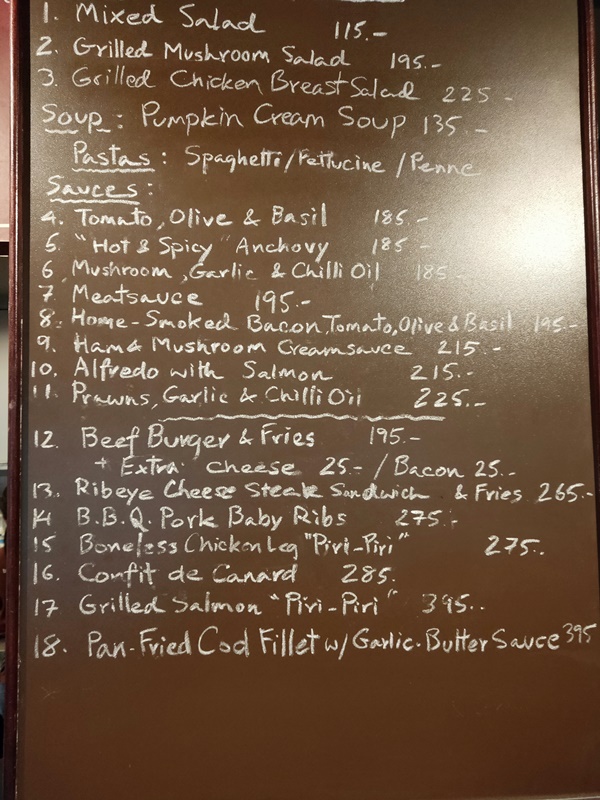 1. Mixed Salad 115.-
2. Grilled Mushroom Salad 195.-
3. Grilled Chicken Breast Salad 225-
Soup: Pumpkin Cream Soup 135.-
Pastas: Spaghetti/Fettucine/Penne
Sauces:
4. Tomato, Olive & Basil 185.-
5. "Hot & Spicy" Anchovy 185-
6. Mushroom, Garlic & Chilli Oil 185-
7. Meatsauce 195.-
8. Home-Smoked Bacon, Tomato, Olive & Basil 195-
9. Ham & Mushroom Creamsauce 215.-
10. Alfredo with Salmon 215.-
11. Prawns, Garlic & Chilli Oil 225.-
12. Beef Burger & Fries 195.-
+ Extra cheese 25.- / Bacon 25.-
13. Ribeye Cheese Steak Sandwich & Fries 265.-
14 B.B.Q. Pork Baby Ribs 275.-
15 Boneless Chicken Leg "Piri-Piri" 275..
16. Confit de Canard 285.
17 Grilled Salmon "Piri-Piri" 395..
18. Pan-Fried Cod Fillet w/ Garlic-Butter Sauce 395